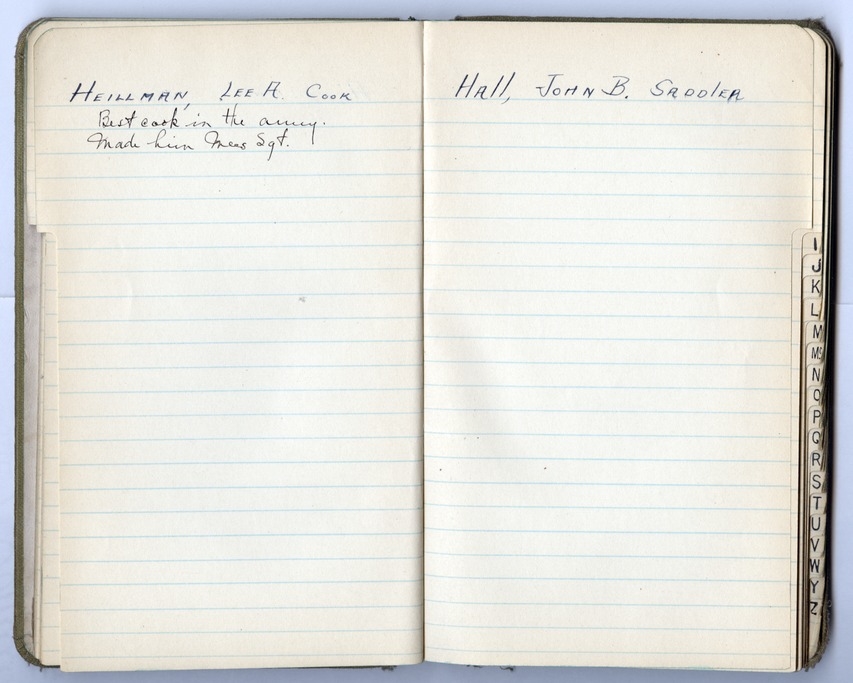 HEILLMAN, LEE A. COOK
Best cook in the army.
Made him Mess Sgt.
HALL, JOHN B. SADDLER
I
J
K
L
M
Mc
N
O
P
Q
R
S
T
U
V
W
Y
Z